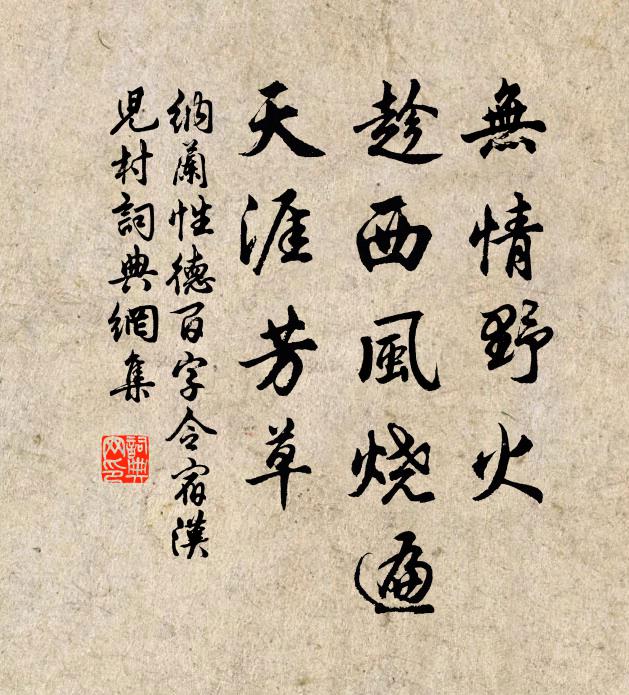 無情野火
趁西風烧遍
天涯芳草
納蘭性德百字令宿漢
児村詞典網集
詞典
网印